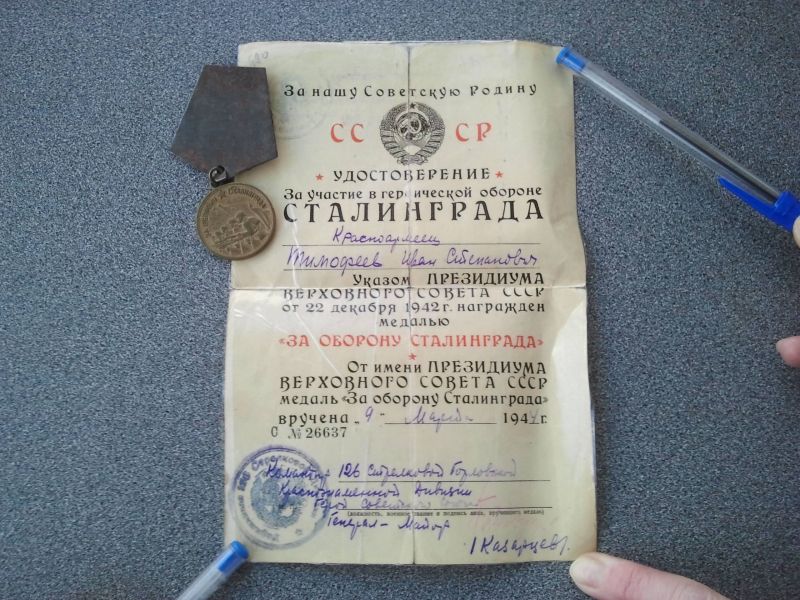 За нашу Советскую Родину
СС СР
УДОСТОВЕРЕНИЕ
За участие в героической обороне
СТАЛИНГРАДА
Красноармеец
Тимофеев Иван Степанович
Указом ПРЕЗИДИУМА
ВЕРХОВНОГО СОВЕТА СССР
от 22 декабря 1942 г. награжден
медалью
«ЗА ОБОРОНУ СТАЛИНГРАДА»
От имени ПРЕЗИДИУМА
ВЕРХОВНОГО СОВЕТА СССР
медаль «За оборону Сталинграда»
вручена „9" Марта 1944 г.
С № 26637
Командир 126 Стрелковой Горловской
Краснознаменной дивизии
Герой Советского
(должность, военное звание и подпись лица, вручившего медаль)
Генерал-Майор
Казарцев